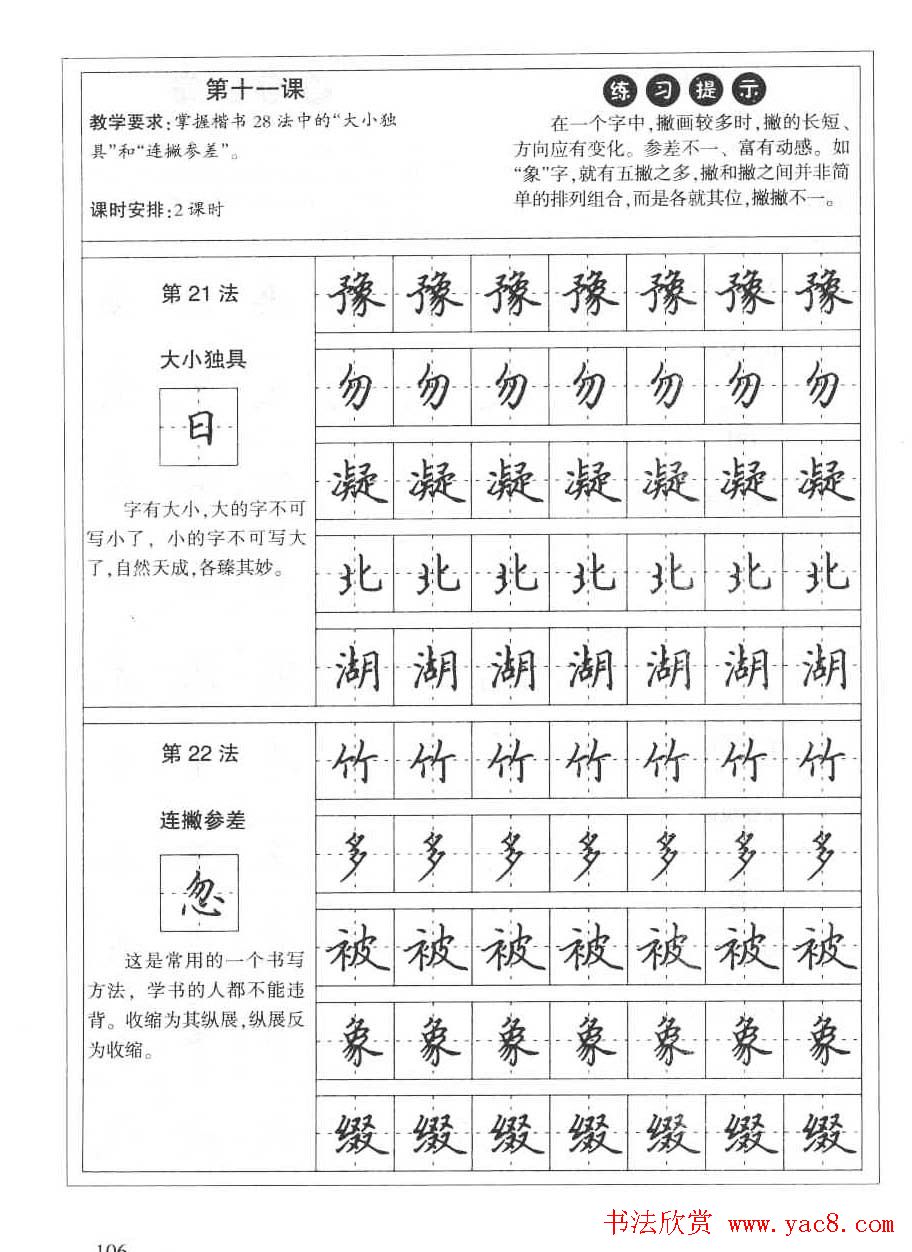 第十一课
教学要求:掌握楷书28法中的“大小独
具”和“连撇参差”。
课时安排:2课时
练习提示
在一个字中,撇画较多时,撇的长短、
方向应有变化。参差不一、富有动感。如
“象”字,就有五撇之多,撇和撇之间并非简
单的排列组合,而是各就其位,撇撇不一。
第21法
大小独具
日
字有大小,大的字不可
写小了，小的字不可写大
了,自然天成,各臻其妙。
豫豫豫豫豫豫豫
勿勿勿勿勿勿勿
凝凝凝凝凝凝凝
北北北北北北北
湖湖湖湖湖湖湖
第22法
连撇参差
忽
这是常用的一个书写
方法，学书的人都不能违
背。收缩为其纵展,纵展反
为收缩。
竹竹竹竹竹竹竹
多多多多多多多
被被被被被被被
象象象象象象象
缀缀缀缀缀缀缀
106
书法欣赏 www.yac8.com